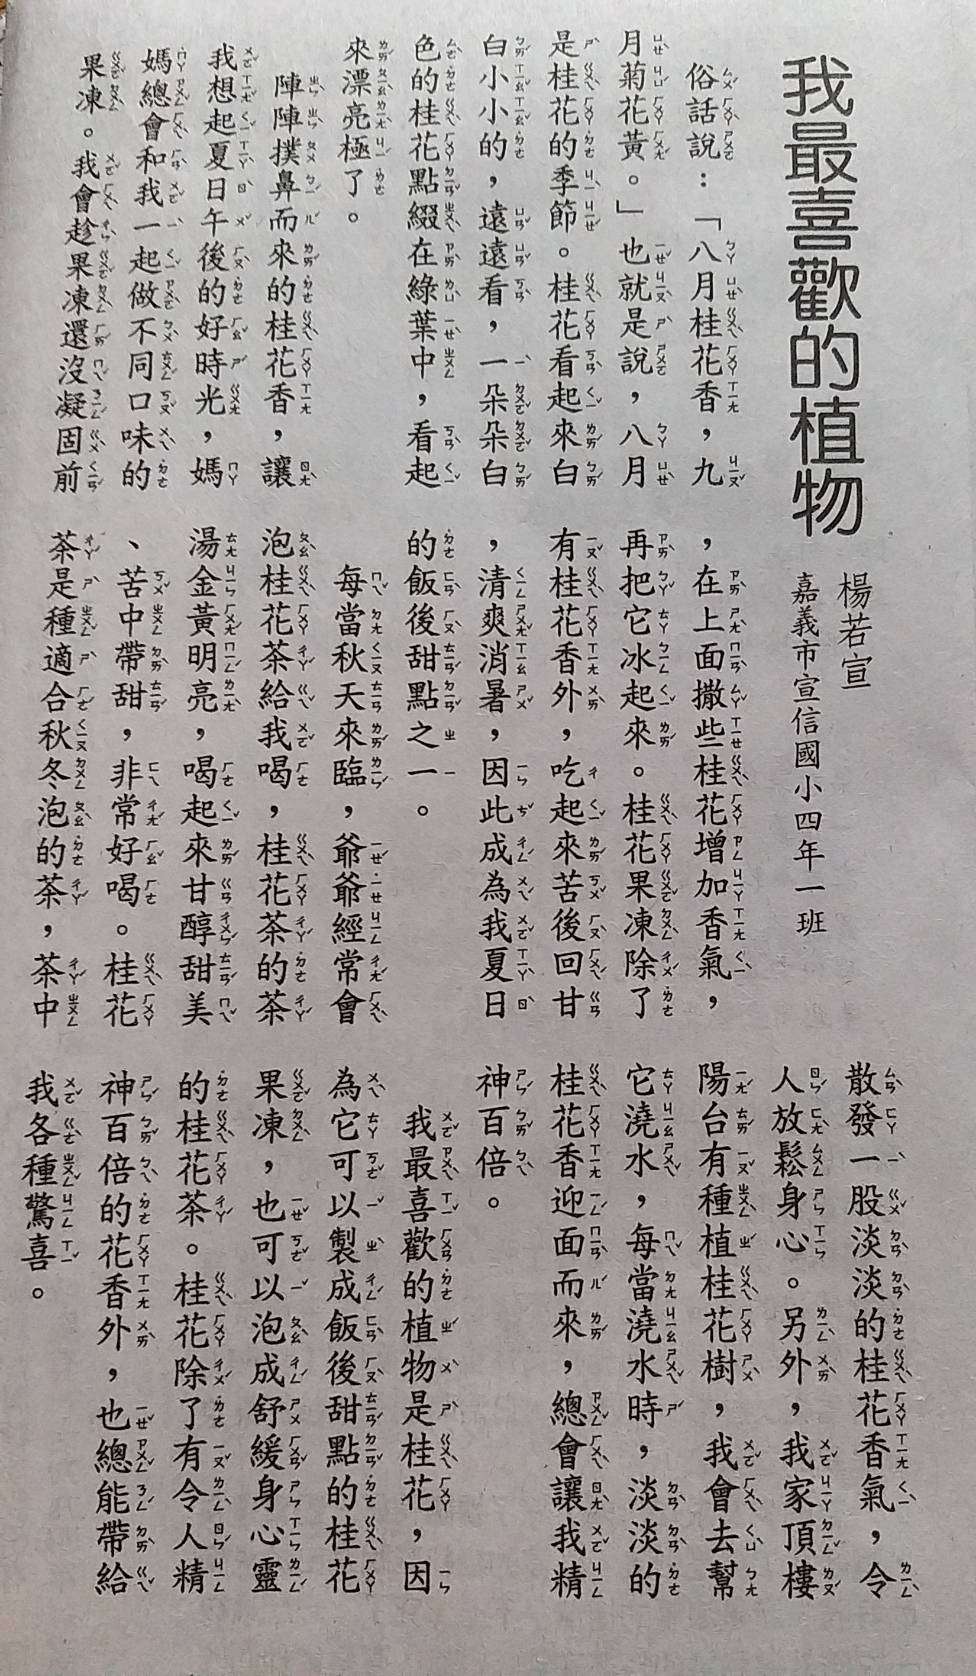 我最喜歡的植物
楊若宣
嘉義市宣信國小四年一班
俗話說：「八月桂花香，九
月菊花黃。」也就是說，八月
是桂花的季節。桂花看起來白
白小小的，遠遠看，一朵朵白
色的桂花點綴在綠葉中，看起
來漂亮極了。
陣陣撲鼻而來的桂花香，讓
我想起夏日午後的好時光，媽
媽總會和我一起做不同口味的
果凍。我會趁果凍還沒凝固前
，在上面撒些桂花增加香氣，
再把它冰起來。桂花果凍除了
有桂花香外，吃起來苦後回甘
，清爽消暑，因此成為我夏日
的飯後甜點之一。
每當秋天來臨，爺爺經常會
泡桂花茶給我喝，桂花茶的茶
湯金黃明亮，喝起來甘醇甜美
、苦中帶甜，非常好喝。桂花
茶是種適合秋冬泡的茶，茶中
散發一股淡淡的桂花香氣，令
人放鬆身心。另外，我家頂樓
陽台有種植桂花樹，我會去幫
它澆水，每當澆水時，淡淡的
桂花香迎面而來，總會讓我精
神百倍。
我最喜歡的植物是桂花，因
為它可以製成飯後甜點的桂花
果凍，也可以泡成舒緩身心靈
的桂花茶。桂花除了有令人精
神百倍的花香外，也總能帶給
我各種驚喜。